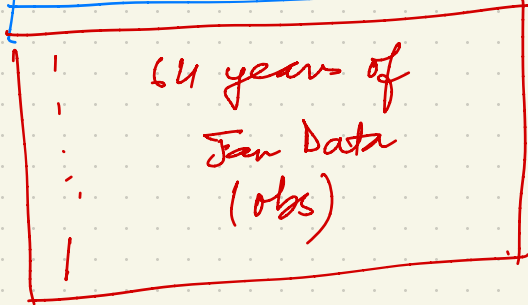 64 years of
Jan Data
(obs)